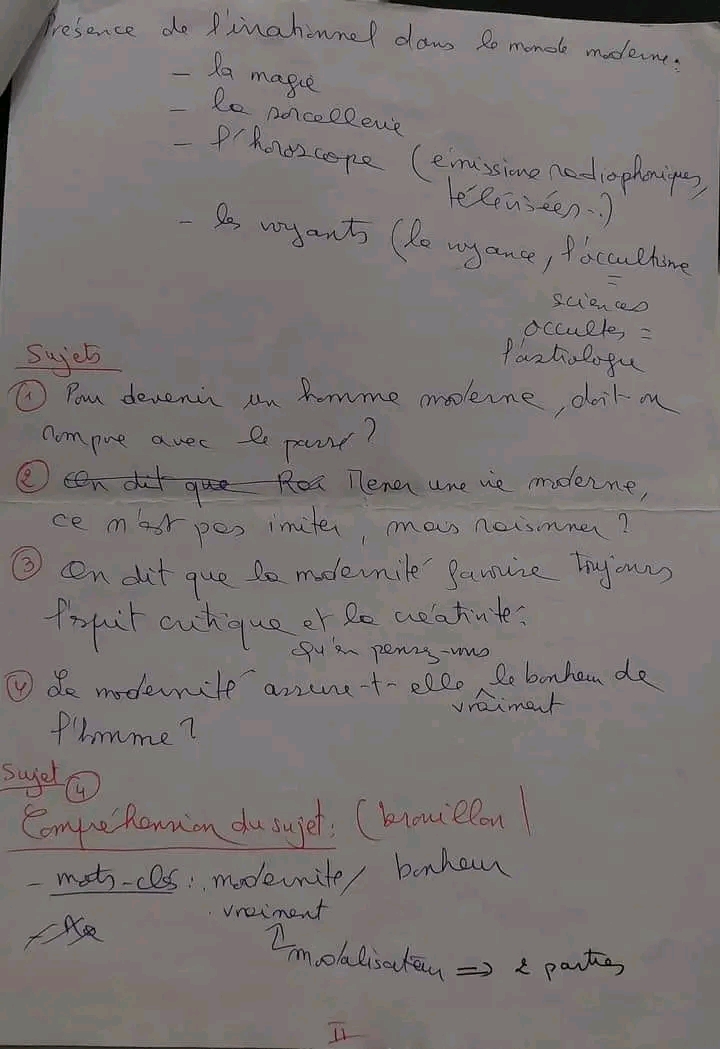 Présence de l'irrationnel dans le monde moderne :
- la magie
- la sorcellerie
- l'horoscope (émissions radiophoniques,
télévisées...)
- les voyants (la voyance, l'occultisme
=
sciences
occultes =
l'astrologie
Sujets
① Pour devenir un homme moderne, doit-on
rompre avec le passé ?
② On dit que Mener une vie moderne,
ce n'est pas imiter, mais raisonner ?
③ On dit que la modernité favorise toujours
l'esprit critique et la créativité.
Qu'en pensez-vous
④ La modernité assure-t-elle le bonheur de
vraiment
l'homme ?
Sujet ④
Compréhension du sujet : (brouillon)
- mots-clés : modernité / bonheur
. vraiment
modalisateur => 2 parties
II